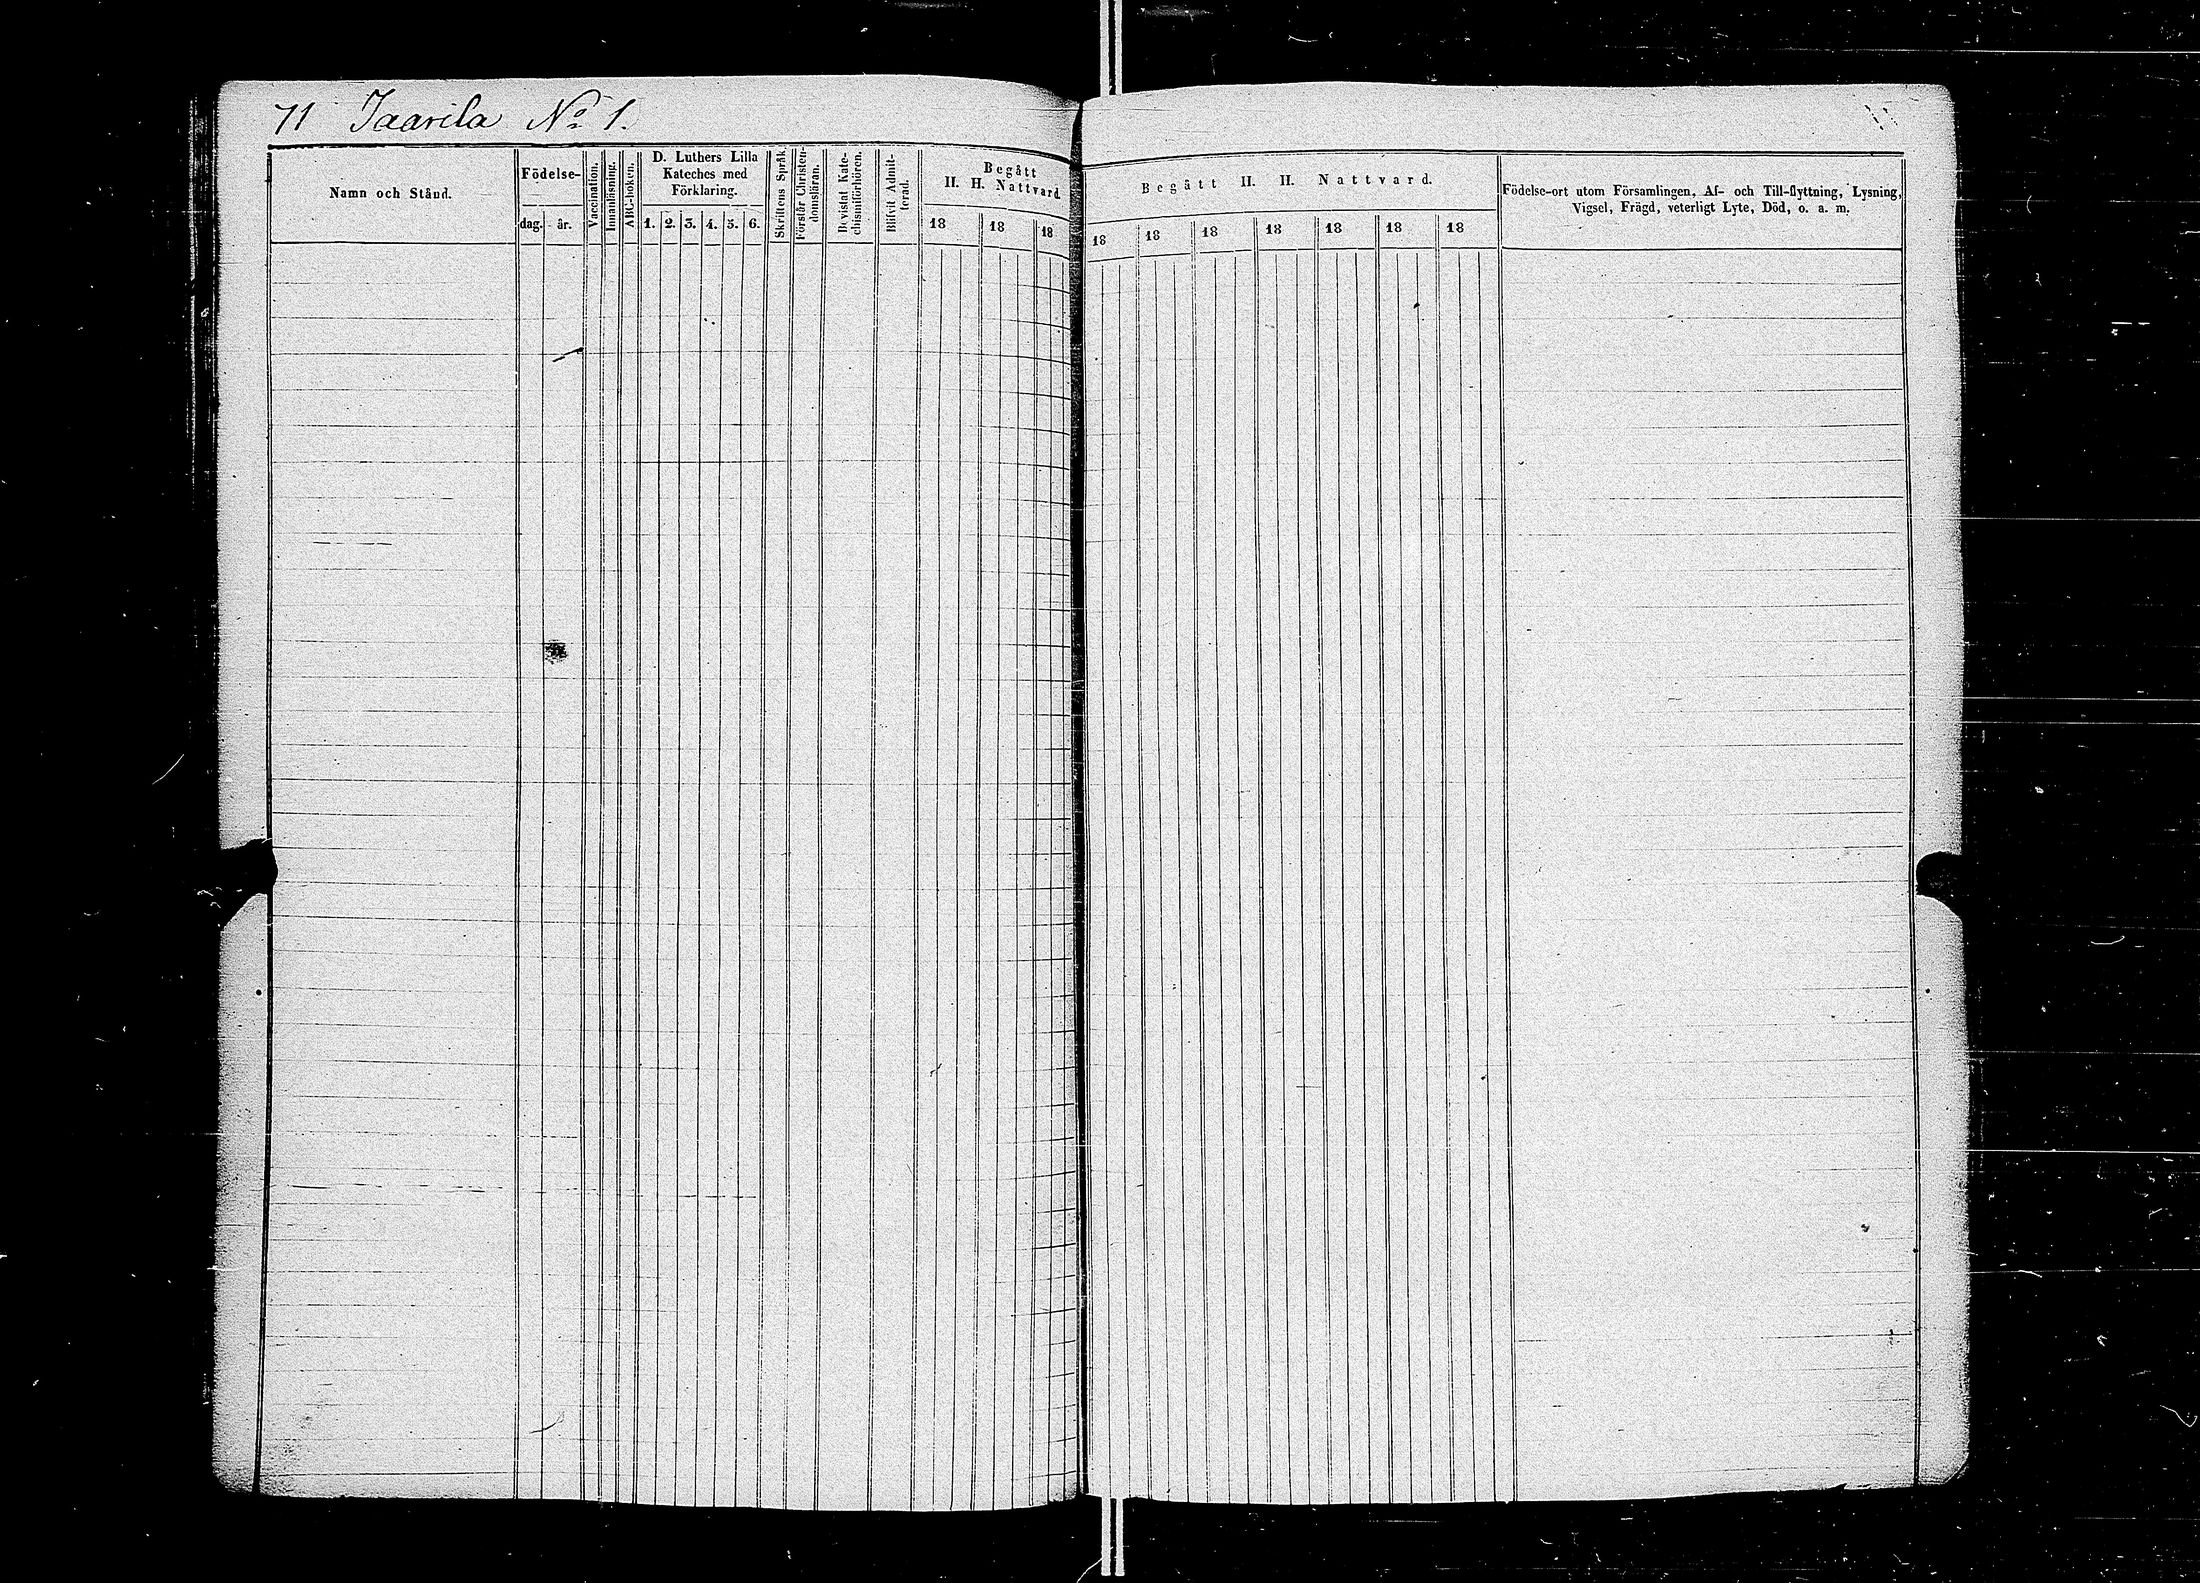 71 Jaarila No 1.
Namn och Stånd.
Födelse-
dag. år.
Vaccination.
Innanläsning.
ABC-boken.
D. Luthers Lilla
Kateches med
Förklaring.
1. 2. 3. 4. 5. 6.
Skriftens Språk.
Förstår Christen-
domsläran.
Bevistat Kate-
chismiförhören.
Blifvit Admit-
terad.
Begått
H. H. Nattvard
18 18 18
Begått H. H. Nattvard.
18 18 18 18 18 18 18
Födelse-ort utom Församlingen, Af- och Till-flyttning, Lysning,
Vigsel, Frägd, veterligt Lyte, Död, o. a. m.